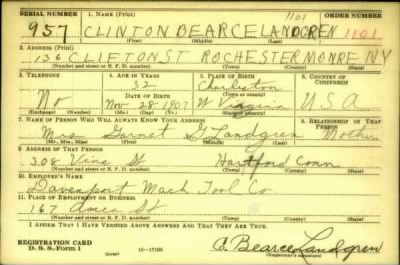 SERIAL NUMBER 1. NAME (Print) 1101 ORDER NUMBER
957 CLINTON BEARCE LANDGREN 1101
(First) (Middle) (Last)
2. ADDRESS (Print)
136 CLIFTON ST ROCHESTER MONRE NY
(Number and street or R. F. D. number) (Town) (County) (State)
3. TELEPHONE 4. AGE IN YEARS 5. PLACE OF BIRTH 6. COUNTRY OF CITIZENSHIP
32 Charleston
No DATE OF BIRTH (Town or county)
Nov 28 1907 W Virginia USA
(Exchange) (Number) (Mo.) (Day) (Yr.) (State or country)
7. NAME OF PERSON WHO WILL ALWAYS KNOW YOUR ADDRESS 8. RELATIONSHIP OF THAT PERSON
Mrs Garnet G Landgren Mother
(Mr., Mrs., Miss) (First) (Middle) (Last)
9. ADDRESS OF THAT PERSON
308 Vine St Hartford Conn
(Number and street or R. F. D. number) (Town) (County) (State)
10. EMPLOYER'S NAME
Davenport Mach Tool Co
11. PLACE OF EMPLOYMENT OR BUSINESS
167 Ames St
(Number and street or R. F. D. number) (Town) (County) (State)
I AFFIRM THAT I HAVE VERIFIED ABOVE ANSWERS AND THAT THEY ARE TRUE.
REGISTRATION CARD
D. S. S. Form 1 (over) 16-17105 C. Bearce Landgren
(Registrant's signature)